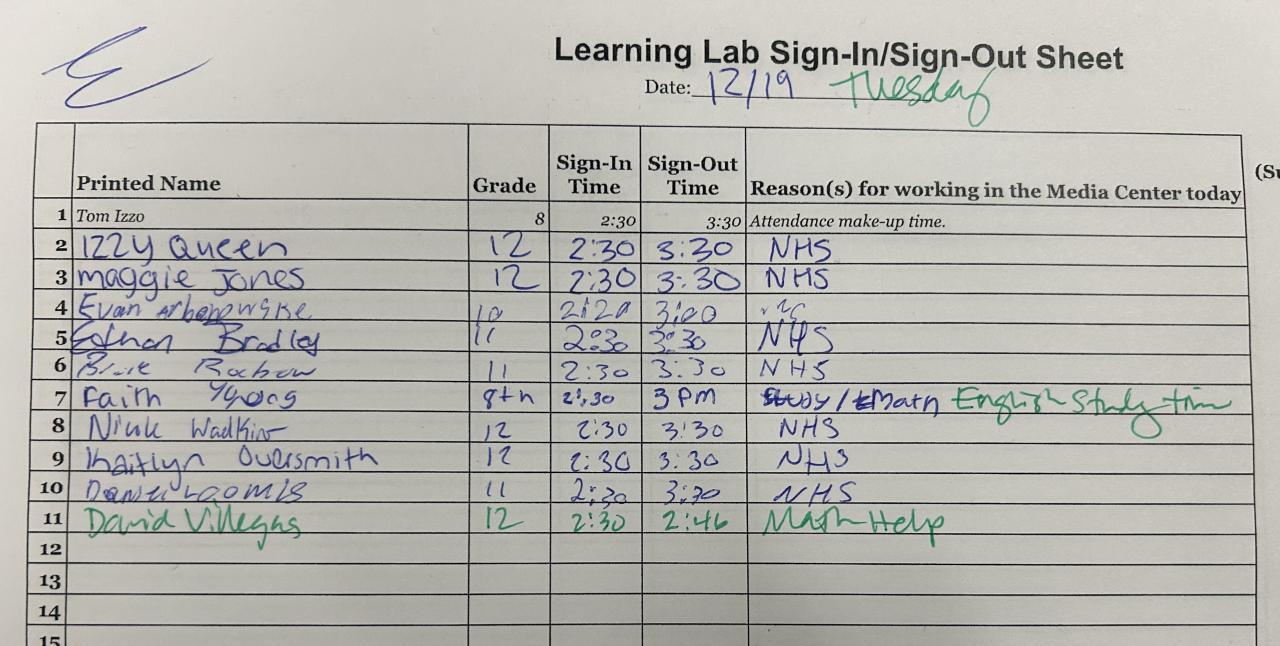 Learning Lab Sign-In/Sign-Out Sheet
Date: 12/19 Tuesday
Printed Name Grade Sign-In Time Sign-Out Time Reason(s) for working in the Media Center today (Su
1 Tom Izzo 8 2:30 3:30 Attendance make-up time.
2 Izzy Queen 12 2:30 3:30 NHS
3 maggie Jones 12 2:30 3:30 NHS
4 Evan 10 2:20 3:00
5 Bradley 11 2:30 3:30 NHS
6 11 2:30 3:30 NHS
7 Faith 8th 2:30 3 pm Study / Math English Study time
8 12 2:30 3:30 NHS
9 Kaitlyn Oversmith 12 2:30 3:30 NHS
10 Daniel Loomis 11 2:30 3:30 NHS
11 David Villegas 12 2:30 2:46 Math Help
12
13
14
15